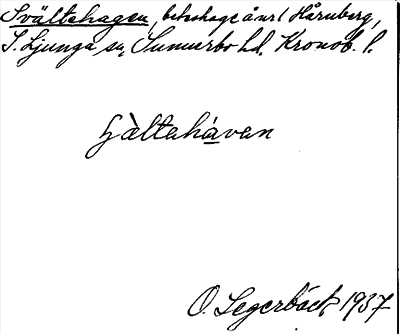 Svältehagen, beteshage å nr 1 Hårnberg,
S. Ljunga sn, Sunnerbo hd. Kronob. l.
hàltehávan
O. Segerbäck 1937